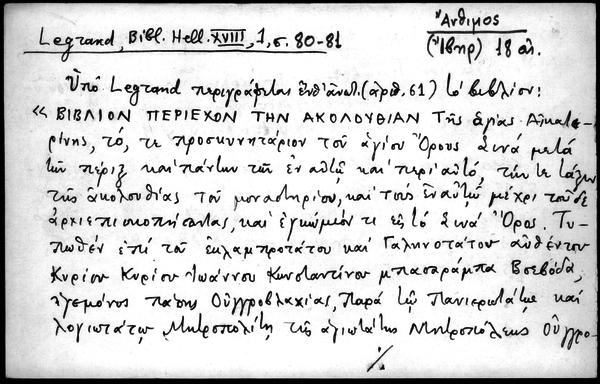 Legrand, Bibl. Hell. XVIII, 1, σ. 80-81
Ἄνθιμος
(Ἴβηρ) 18 αἰ.
Ὑπὸ Legrand περιγράφεται ἐνθ' ἀνωτ. (ἀριθ. 61) τὸ βιβλίον:
« ΒΙΒΛΙΟΝ ΠΕΡΙΕΧΟΝ ΤΗΝ ΑΚΟΛΟΥΘΙΑΝ Τῆς ἁγίας Αἰκατε-
ρίνης, τό, τε προσκυνητάριον τοῦ ἁγίου Ὄρους Σινᾶ μετὰ
τῶν πέριξ καὶ πάντων τῶν ἐν αὐτῷ καὶ περὶ αὐτό, τήν τε τάξιν
τῆς ἀκολουθίας τοῦ μοναστηρίου, καὶ τοὺς ἐν αὐτῷ μέχρι τοῦδε
ἀρχιεπισκοπήσαντας, καὶ ἐγκώμιόν τι εἰς τὸ Σινᾶ Ὄρος. Τυ-
πωθὲν ἐπὶ τοῦ ἐκλαμπροτάτου καὶ Γαληνοτάτου αὐθέντου
Κυρίου Κυρίου Ἰωάννου Κωνσταντίνου μπασαράμπα Βοεβόδα,
ἡγεμόνος πάσης Οὐγγροβλαχίας, Παρὰ τῷ Πανιερωτάτῳ καὶ
λογιωτάτῳ Μητροπολίτῃ τῆς ἁγιωτάτης Μητροπόλεως Οὐγγρο-
./.